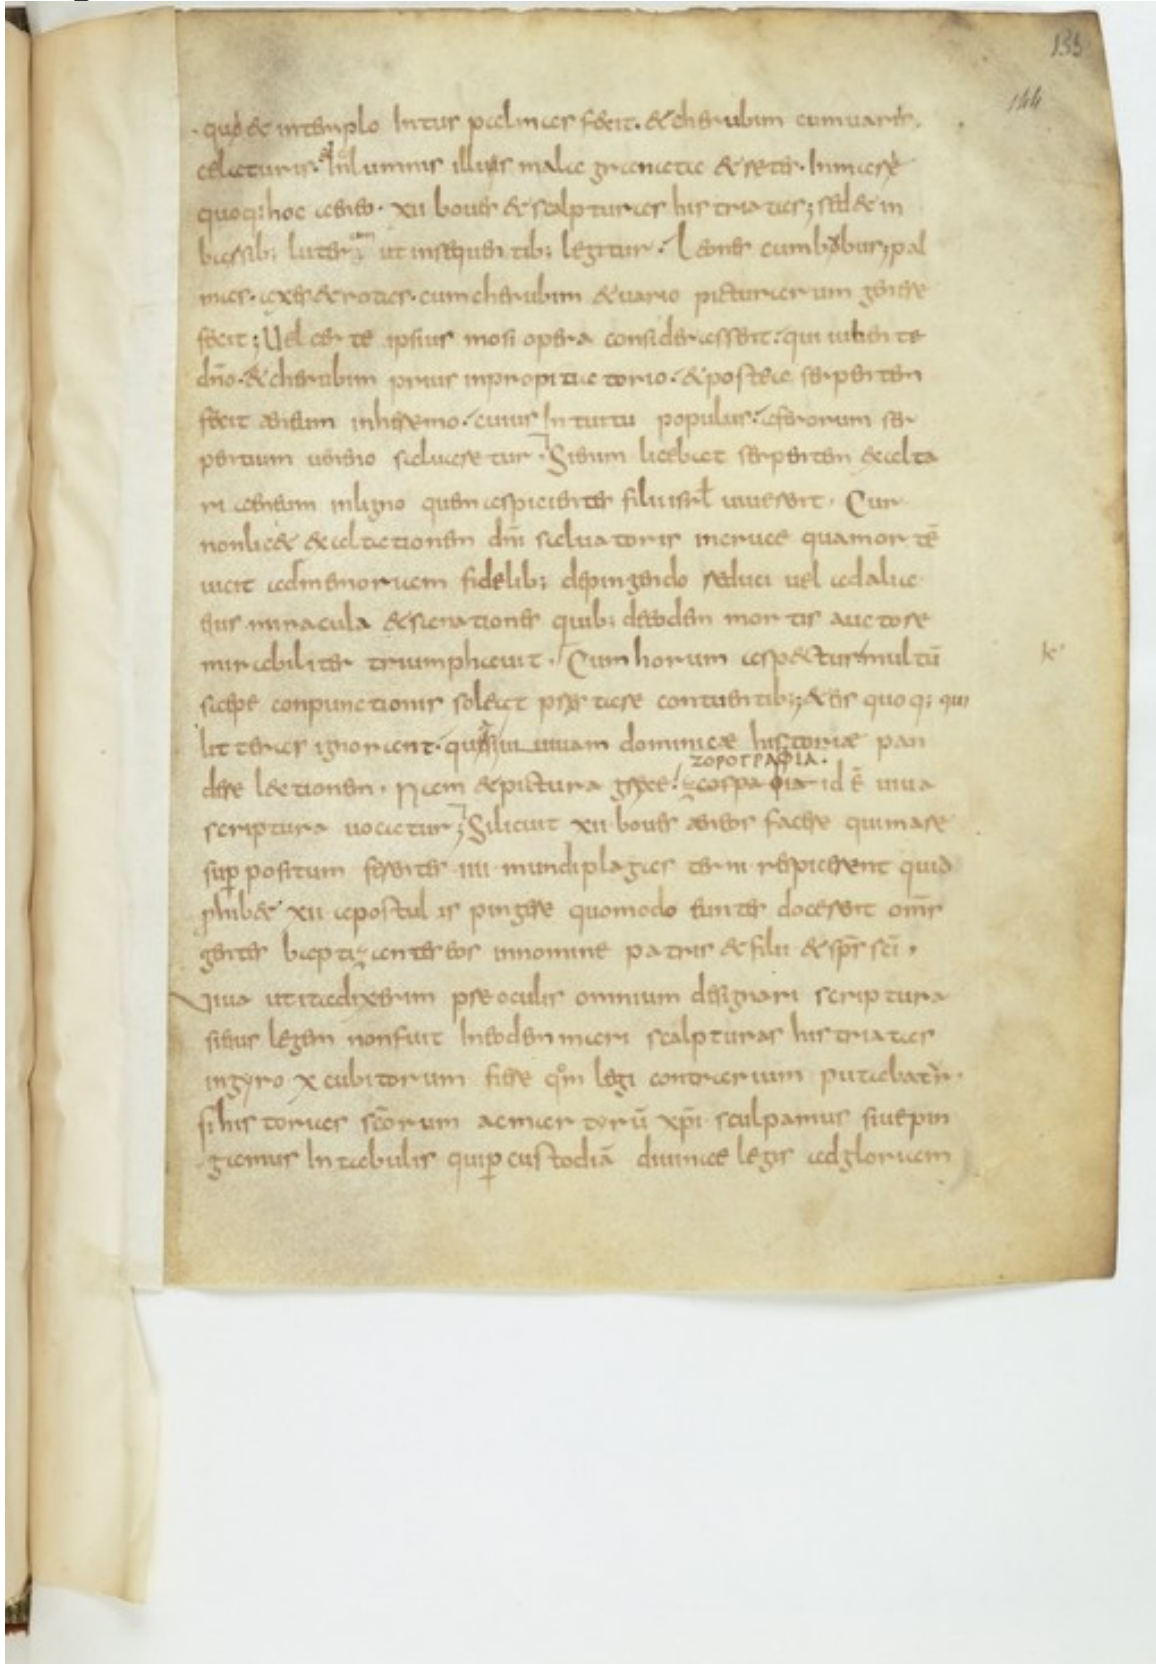 133
144
quod & in templo intus palmas fecit. & cherubim cum uariis
celaturis. & in columnis illius mala granata & retia. In mare
quoq; hoc aeneo. xii boues & scalpturas histriatas; sed & in
basib; luterum ut in sequentib; legitur. Leones cum bobus; pal
mas. axes & rotas. cum cherubim & uario picturarum genere
fecit; Vel certe ipsius mosi opera considerassent. qui iubente
dño. & cherubim prius in propitiatorio. & postea serpentem
fecit aeneum in heremo. cuius intuitu populus. a ferorum ser
pentium ueneno saluaretur. Si enim licebat serpentem exalta
ri aeneum in ligno quem aspicientes filii isrł uiuerent. Cur
non licet exaltationem dñi saluatoris in cruce qua mortẽ
uicit ad memoriam fidelib; depingendo reduci uel ad alia
eius miracula & sanationes quib; de eodem mortis auctore
mirabiliter triumphauit. Cum horum aspectus multũ
saepe conpunctionis soleat prestare contuentib; & eis quoq; qui
litteras ignorant. quasi uiuam dominicae historiae pan
dere lectionem. Nam & pictura grece
ΖΟΡΟΓΡΑΦΙΑ.
id ẽ uiua
scriptura uocatur; Si licuit xii boues aeneos facere qui mare
suppositum ferentes iiii mundi plagas terni respicerent quid
prohibet xii apostulis pingere quomodo euntes docerent oms̃
gentes baptizantes eos in nomine patris & filii & sps̃ sci̅.
Viua ut ita dixerim pre oculis omnium designari scriptura
si eius legem non fuit in eodem mari scalpturas histriatas
in gyro x cubitorum fiere quõm legi contrarium putabatur.
si historias scõrum ac martyrũ xpĩ sculpamus siue pin
gamus in tabulis qui p custodiã diuinae legis ad gloriam